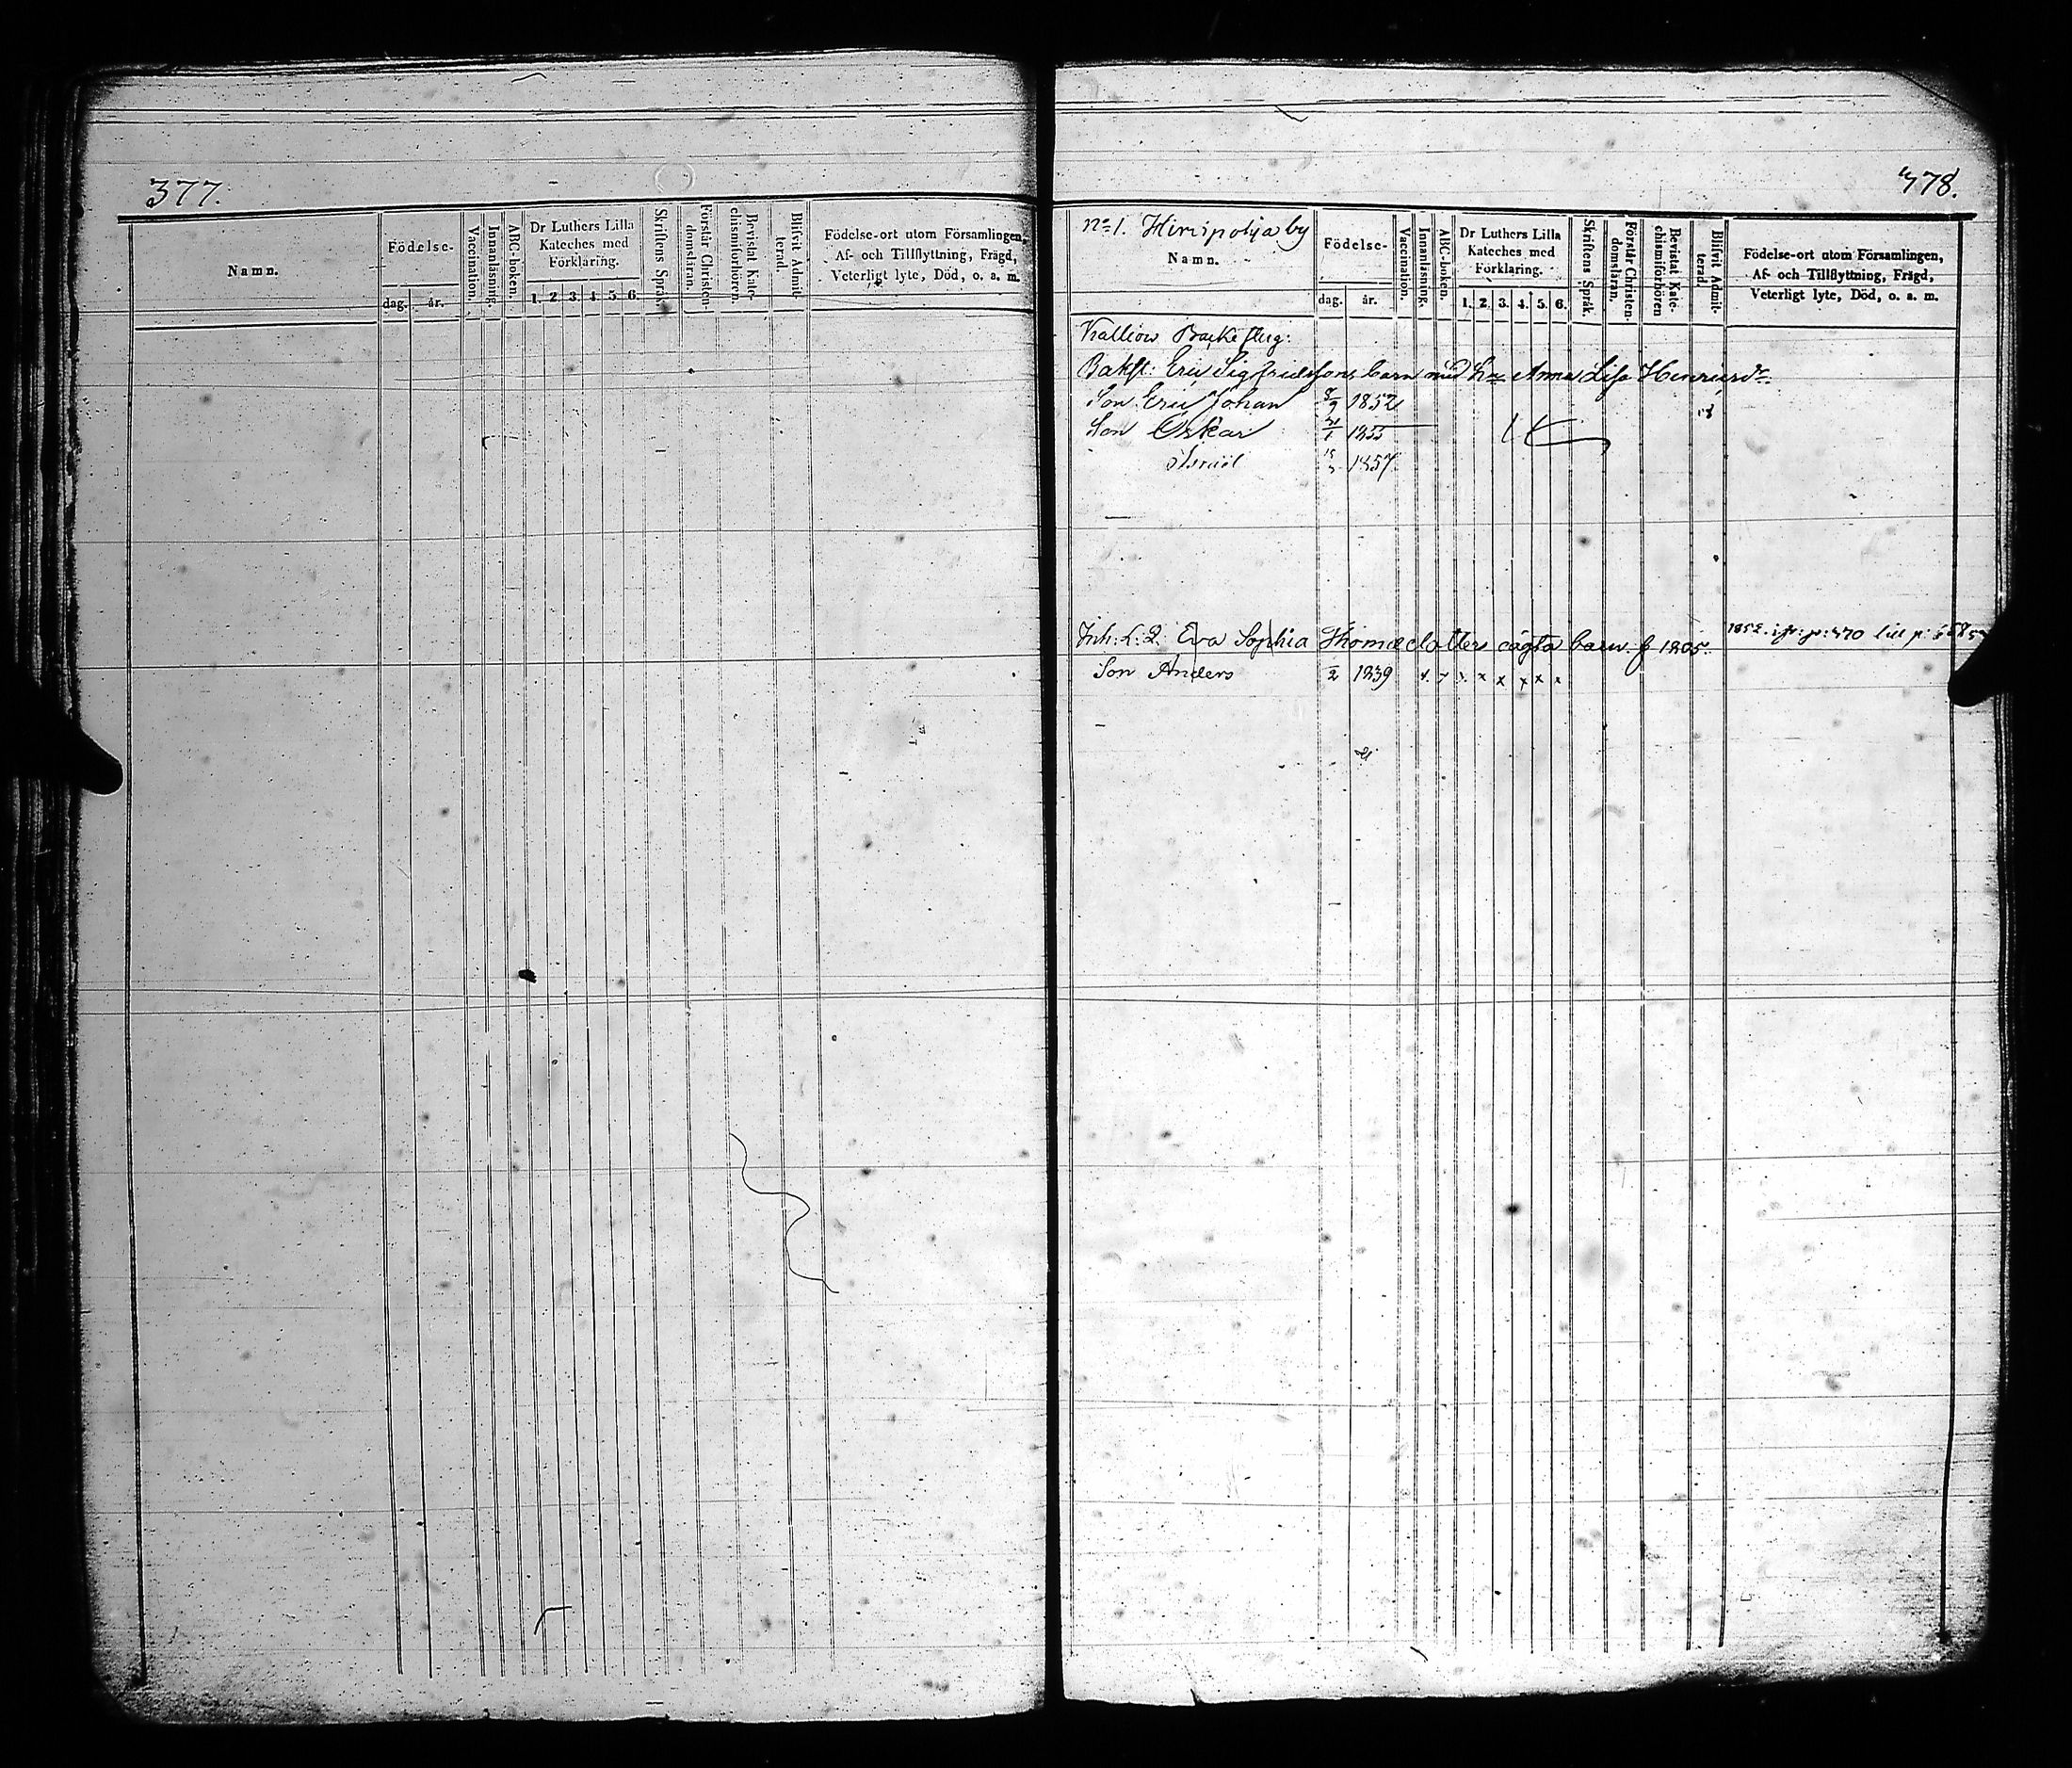 377.
Namn.
Födelse-
dag. år.
Vaccination.
Innanläsning.
ABC-boken.
Dr Luthers Lilla
Kateches med
Förklaring.
1. 2. 3. 4. 5. 6.
Skriftens Språk.
Förstår Christen-
domsläran.
Bevistat Kate-
chismiförhören.
Blifvit Admit-
terad.
Födelse-ort utom Församlingen,
Af- och Tillflyttning, Frägd,
Veterligt lyte, Död, o. a. m.
478.
No 1. Hirsipohja by
Namn.
Födelse-
dag. år.
Vaccination.
Innanläsning.
ABC-boken.
Dr Luthers Lilla
Kateches med
Förklaring.
1. 2. 3. 4. 5. 6.
Skriftens Språk.
Förstår Christen-
domsläran.
Bevistat Kate-
chismiförhören
Blifvit Admit-
terad.
Födelse-ort utom Församlingen,
Af- och Tillflyttning, Frägd,
Veterligt lyte, Död, o. a. m.
Kalliow Backestug:
Bakst: Eric Sigfridssons barn med h. Anna Lisa Henricsdr
Son Eric Johan 1852
Son Oskar 1855
Israel 1857
Inh: L: Q: Eva Sophia Thomædotters oägta barn. f 1805. 1852. ifr: p: 470 till p:
Son Anders 1839 x x x x x x x x